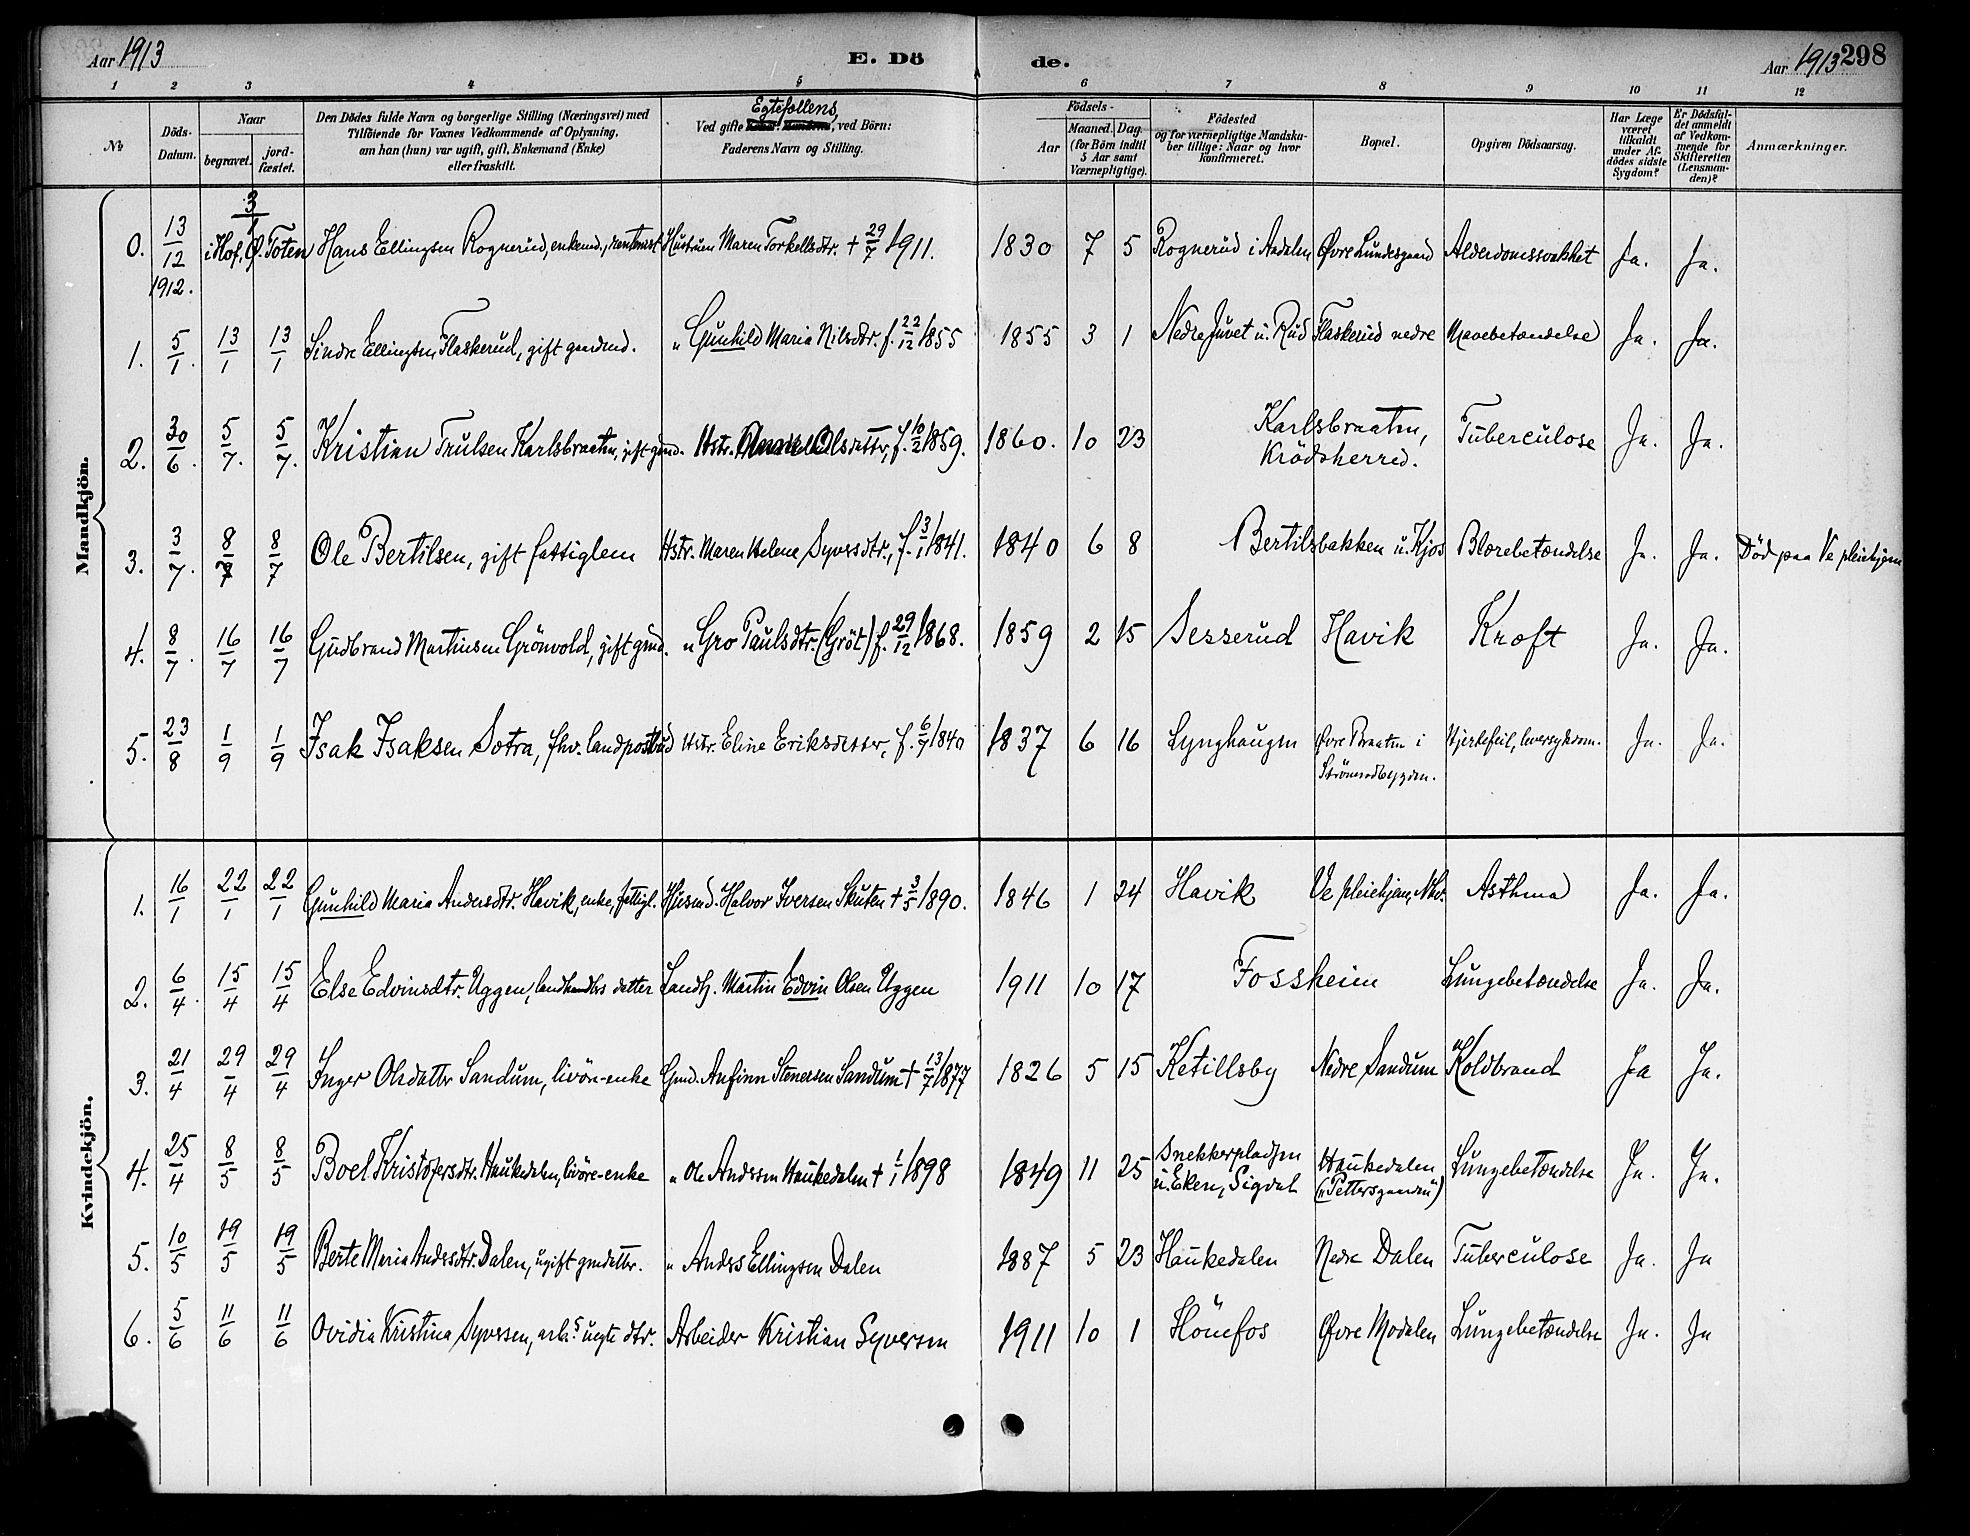 Aar 1913 E. Dö de. Aar 1913 298
1 2 3 4 5 6 7 8 9 10 11 12
№ Döds-Datum. Naar begravet. jordfæstet. Den Dödes fulde Navn og borgerlige Stilling (Næringsvei) med Tilföiende for Voxnes Vedkommende af Oplysning, om han (hun) var ugift, gift, Enkemand (Enke) eller fraskilt. Egtefællens, Ved gifte , ved Börn: Faderens Navn og Stilling. Födsels- Aar Maaned. Dag. (for Börn indtil 5 Aar samt Værnepligtige). Födested og for værnepligtige Mandskaber tillige: Naar og hvor konfirmeret. Bopæl. Opgiven Dödsaarsag. Har Læge været tilkaldt under Afdödes sidste Sygdom? Er Dödsfaldet anmeldt af Vedkommende for Skifteretten (Lensmanden)? Anmærkninger.
Mandkjön.
0. 13/12 1912. 3/1 i Hof, Ø. Toten Hans Ellingsen Rognerud, enkemd., rentenist Hustruen Maren Torkellsdtr. + 29/7 1911. 1830 7 5 Rognerud i Aadalen Øvre Lundesgaard Alderdomssvakhet Ja. Ja.
1. 5/1. 13/1 13/1 Sindre Ellingsen Flaskerud, gift gaardmd. " Gunhild Maria Nilsdtr. f. 22/12 1855 1855 3 1 Nedre Juvet u. Rud Flaskerud nedre Mavebetændelse Ja. Ja.
2. 30/6. 5/7. 5/7. Kristian Trulsen Karlsbraaten, gift gmd. Hstr. Olsdatter, f. 10/2 1859. 1860. 10 23 Karlsbraaten, Krödsherred. Tuberculose Ja. Ja.
3. 3/7. 8/7 8/7 Ole Bertilsen, gift fattiglem Hstr. Maren Helene Syversdtr., f. 3/1 1841. 1840 6 8 Bertilsbakken u. Kjos Blærebetændelse Ja. Ja. Död paa Ve pleiehjem
4. 8/7. 16/7 16/7 Gudbrand Martinsen Grönvold, gift gmd. " Gro Paulsdtr. (Gröt) f. 29/12 1868. 1859 2 15 Sesserud Havik Kræft Ja. Ja.
5. 23/8 1/9 1/9 Isak Isaksen Sotra, fhv. landpostbud Hstr. Eline Eriksdatter, f. 6/7 1840 1837 6 16 Lynghaugen Øvre Braaten i Strömsodbygden. Hjertefeil, leversykdom. Ja. Ja.
Kvindekjön.
1. 16/1 22/1 22/1 Gunhild Maria Andersdtr. Havik, enke, fattigl. Husmd. Halvor Iversen Skuten + 3/5 1890. 1846 1 24 Havik Ve pleiehjem, Nhv. Asthma Ja. Ja.
2. 6/4. 15/4 15/4 Else Edvinsdtr. Uggen, landhandlers datter Landh. Martin Edvin Olsen Uggen 1911 10 17 Fossheim Lungebetændelse Ja. Ja.
3. 21/4 29/4 29/4 Inger Olsdatter Sandum, livöre-enke Gmd. Anfinn Stenersen Sandum + 13/7 1877 1826 5 15 Ketillsby Nedre Sandum Koldbrand Ja Ja.
4. 25/4 8/5 8/5 Boel Kristofersdtr. Haukedalen, livöre-enke " Ole Andersen Haukedalen + 1/1 1898 1849 11 25 Snekkerpladsen u. Eken, Sigdal Haukedalen ("Pettersgaarden") Lungebetændelse Ja. Ja.
5. 10/5 19/5 19/5 Berte Maria Andersdtr. Dalen, ugift gmdatter. " Anders Ellingsen Dalen 1887 5 23 Haukedalen Nedre Dalen Tuberculose Ja. Ja
6. 5/6 11/6 11/6 Ovidia Kristina Syversen, arb.s uegte dtr. Arbeider Kristian Syversen 1911 10 1 Hönefos Øvre Modalen Lungebetændelse Ja. Ja